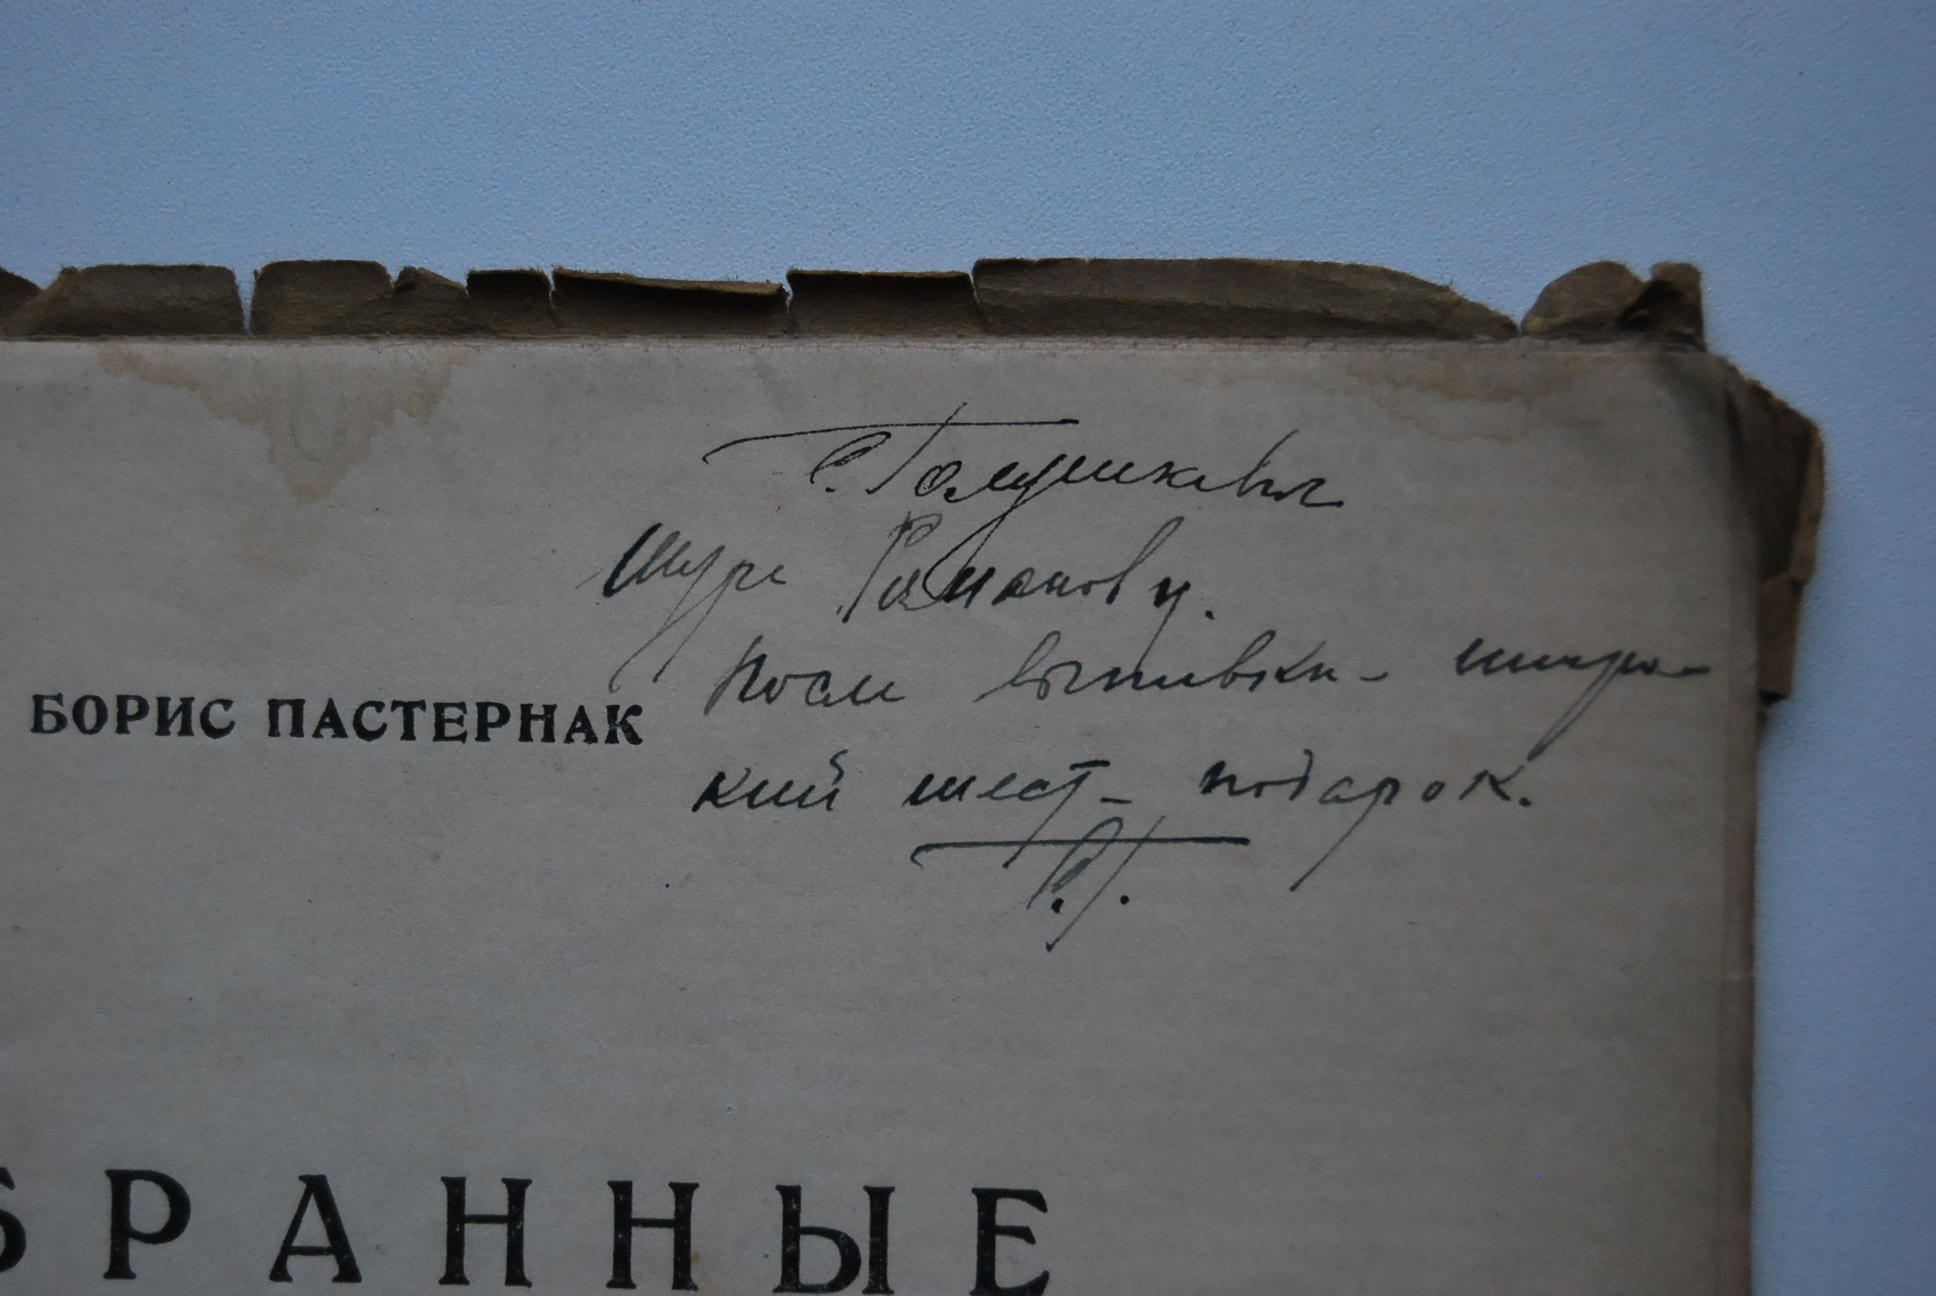 С. Голушкевич
Шуре Романову.
После выпивки - широ-
кий жест - подарок.
С.Г.
БОРИС ПАСТЕРНАК
БРАННЫЕ